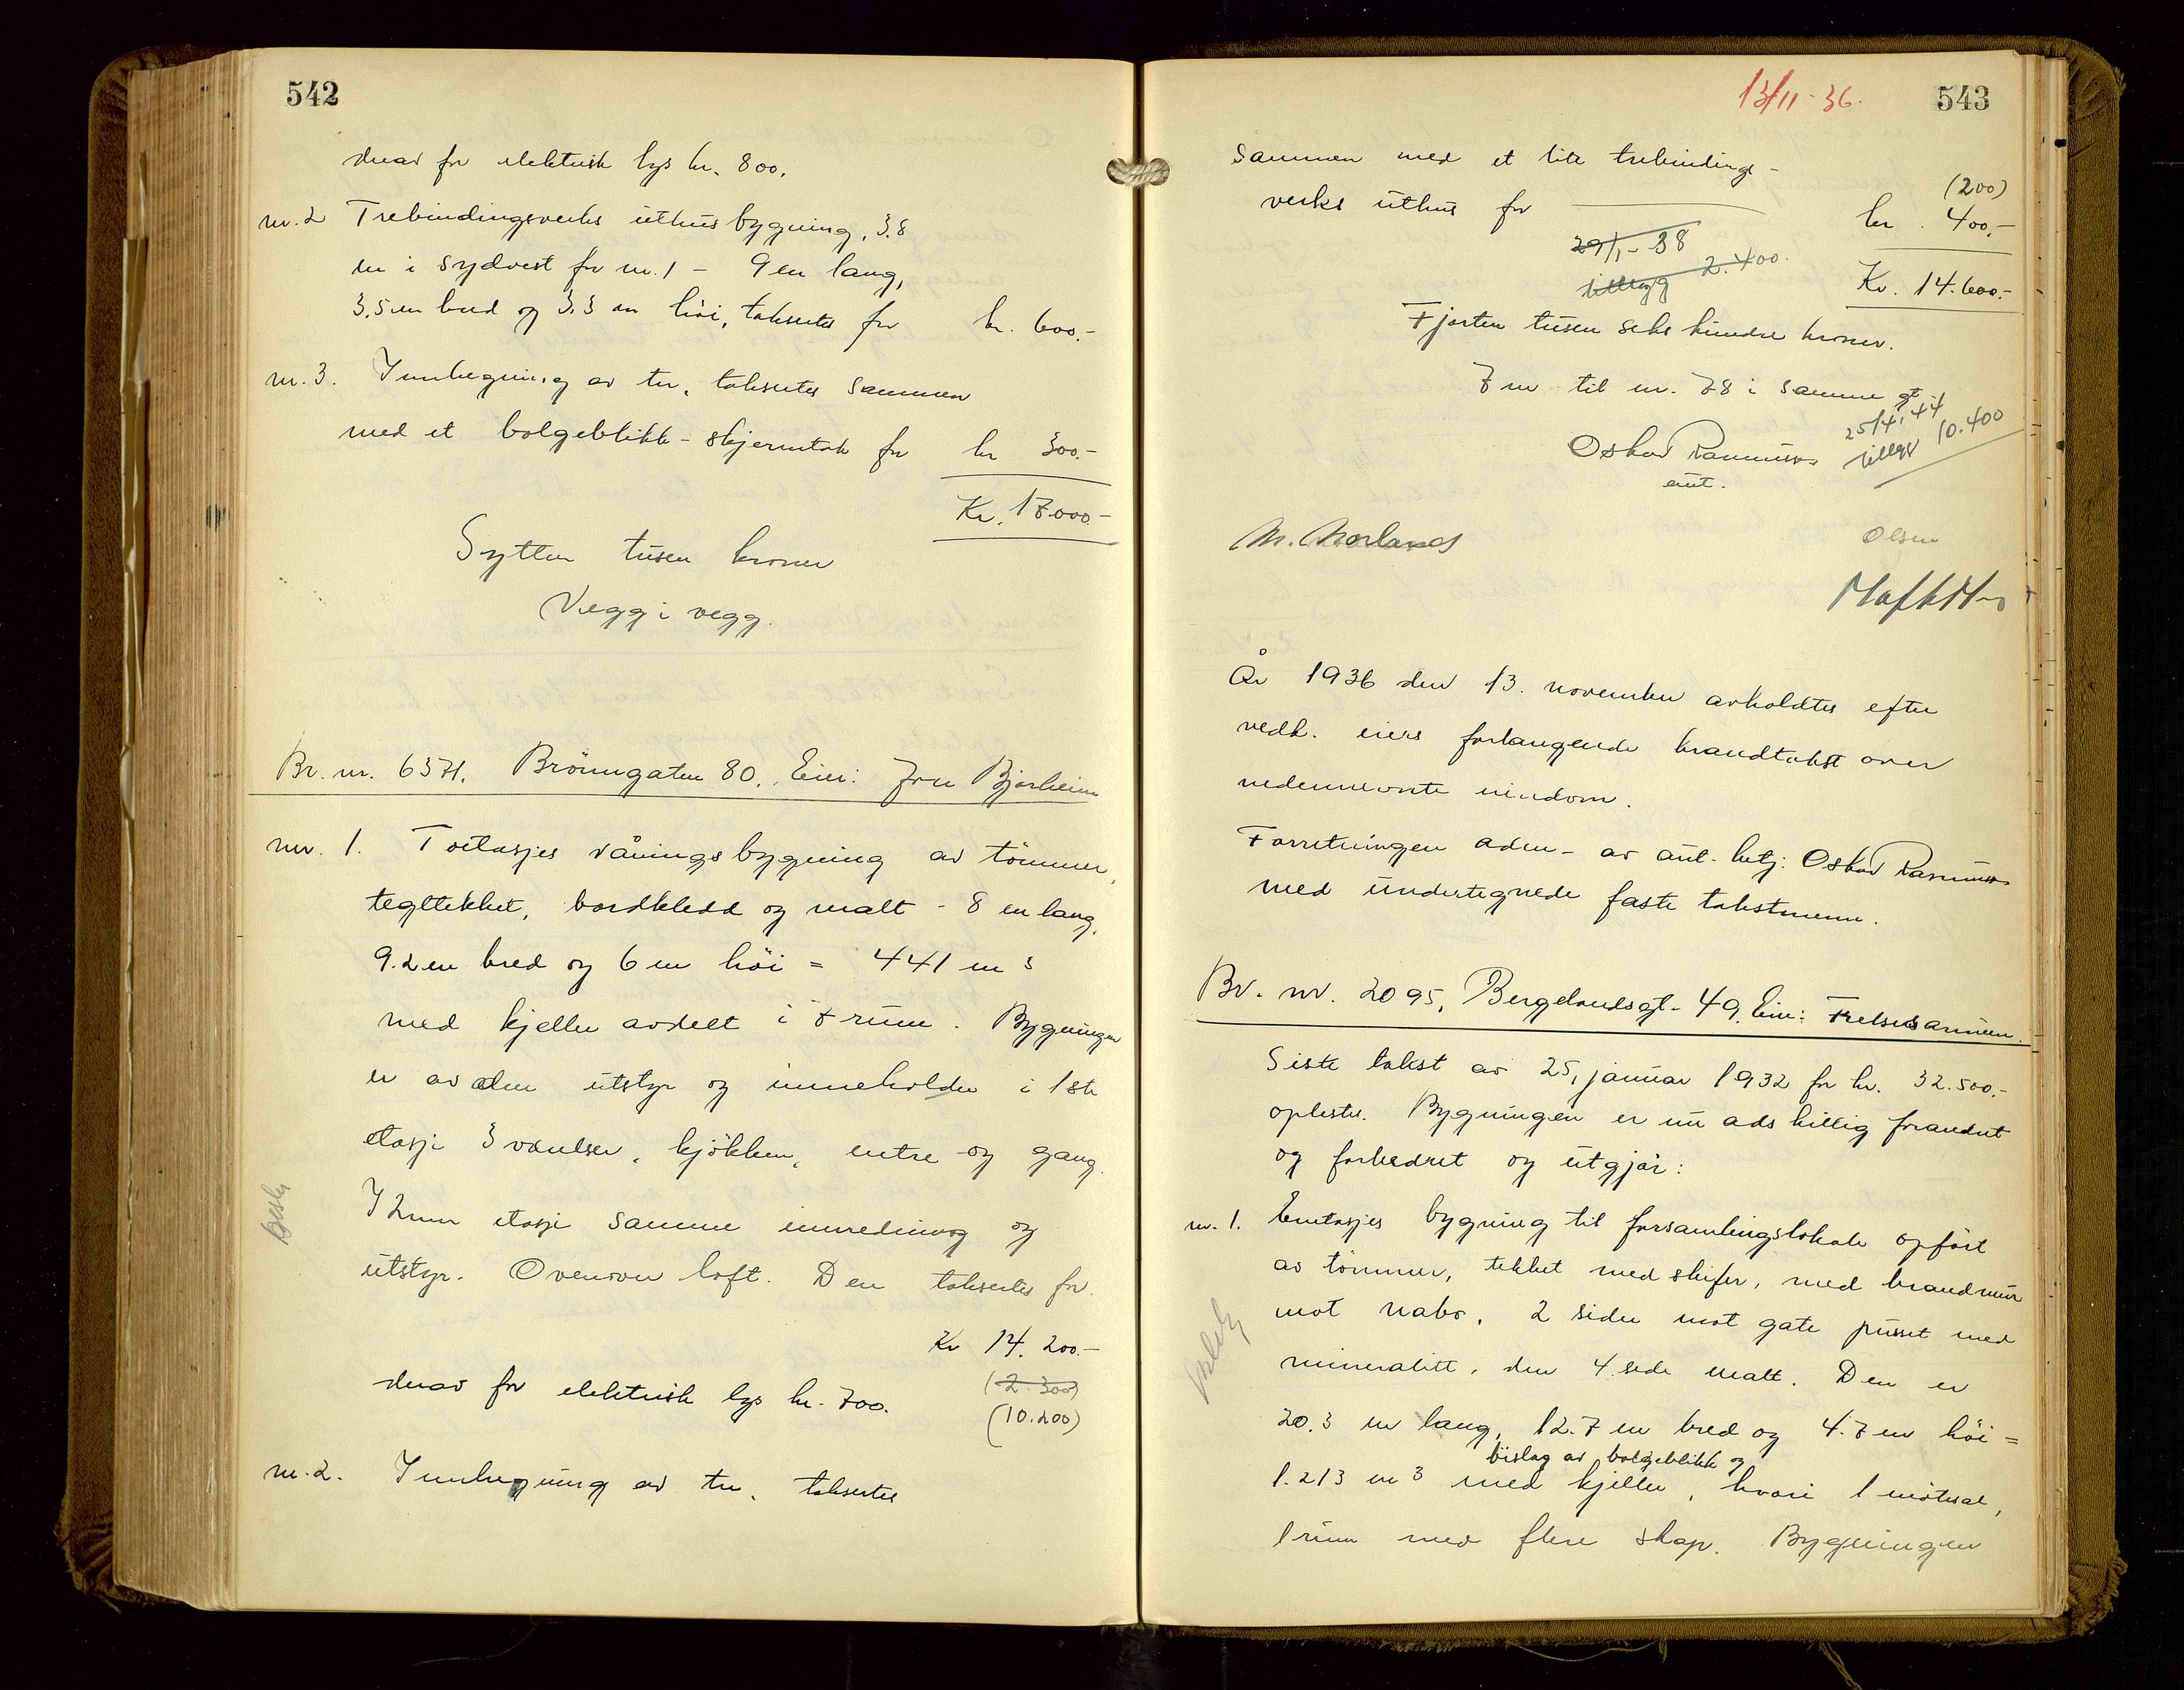 542
derav for elektrisk lys kr. 800.
nr. 2 Trebindingsverks uthusbygning, 3.8
m i sydvest for nr. 1 - 9 m lang,
3.5 m bred og 3.3 m høi, takseres for kr. 600.-
nr. 3. Innhegning av tre, takseres sammen
med et bølgeblikk-skjermtak for kr 300.-
Kr. 17.000.-
Sytten tusen kroner
Vegg i vegg.
Br. nr. 637l. Brönngaten 80. Eier: Fru Bjørheim
nr. 1. Toetasjes våningsbygning av tömmer,
tegltekket, bordkledd og malt - 8 m lang,
9.2 m bred og 6 m höi = 441 m 3
med kjeller avdelt i 7 rum. Bygningen
er av alm utstyr og inneholder i 1ste
etasje 3 værelser, kjökken, entre og gang.
I 2nen etasje samme innredning og
utstyr. Ovenover loft. Den takseres for
Kr 14.200.-
(2.300)
derav for elektrisk lys kr. 700.
(10.200)
nr. 2. Innhegning av tre, takseres
13/11-36.
543
sammen med et lite trebindings-
(200)
verks uthus for kr. 400,-
29/1-38
tillegg 2.400.
Kr. 14.600.-
Fjorten tusen seks hundre kroner.
7 m til nr. 78 i samme gt.
25/4.44
tillegg 10.400
Oskar Rasmussen
aut.
M. Norland
Olsen
År 1936 den 13. november avholdtes efter
vedk. eiers forlangende brandtakst over
nedennevnte eiendom.
Forretningen adm- av aut. betj: Oskar Rasmussen
med undertegnede faste takstmenn.
Br. nr. 2095, Bergelandsgt. 49. Eier: Frelsesarmeen.
Siste takst av 25, januar 1932 for kr. 32.500.-
oplestes. Bygningen er nu adskillig forandret
og forbedret og utgjør:
nr. 1. Enetasjes bygning til forsamlingslokale opført
av tømmer, tekket med skifer, med brandmur
mot nabo, 2 sider mot gate pusset med
mineralitt, den 4. side malt. Den er
20.3 m lang, 12.7 m bred og 4.7 m høi =
bislag av bølgeblikk og
1.213 m 3 med kjeller, hvori 1 møtesal,
1 rum med flere skap. Bygningen